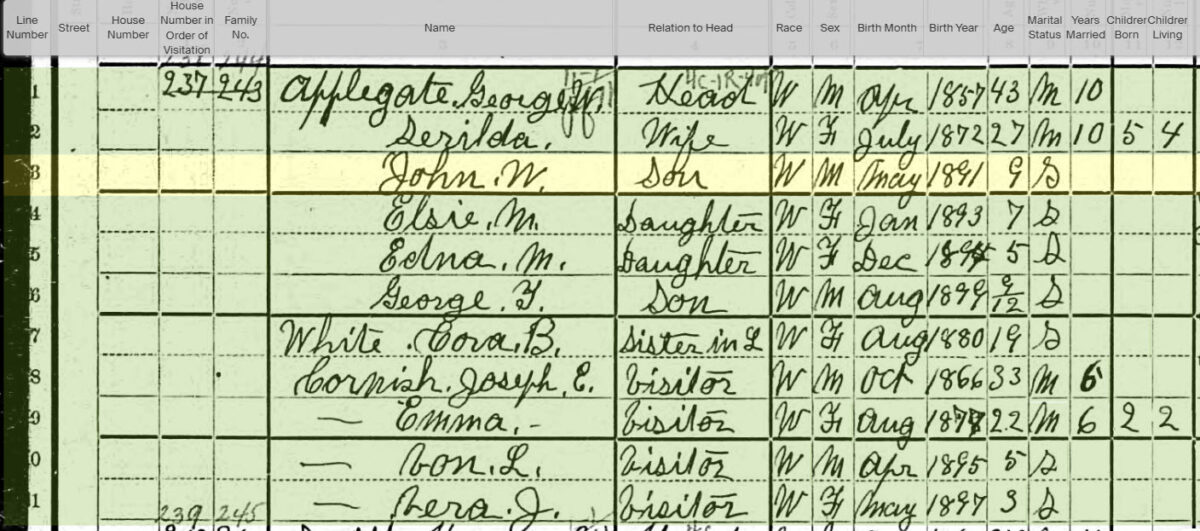 Line Number Street House Number House Number in Order of Visitation Family No. Name Relation to Head Race Sex Birth Month Birth Year Age Marital Status Years Married Children Born Children Living
1 237 243 Applegate, George W. Head W M Apr 1857 43 M 10
2 Serilda. Wife W F July 1872 27 M 10 5 4
3 John. W. Son W M May 1891 9 S
4 Elsie. M. Daughter W F Jan 1893 7 S
5 Edna. M. Daughter W F Dec 1894 5 S
6 George. F. Son W M Aug 1899 9/12 S
7 White. Cora. B. Sister in L W F Aug 1880 19 S
8 Cornish. Joseph. E. Visitor W M Oct 1866 33 M 6
9 — Emma. - Visitor W F Aug 1877 22 M 6 2 2
10 — Von. L. Visitor W M Apr 1895 5 S
11 — Vera. J. Visitor W F May 1897 3 S
239 245